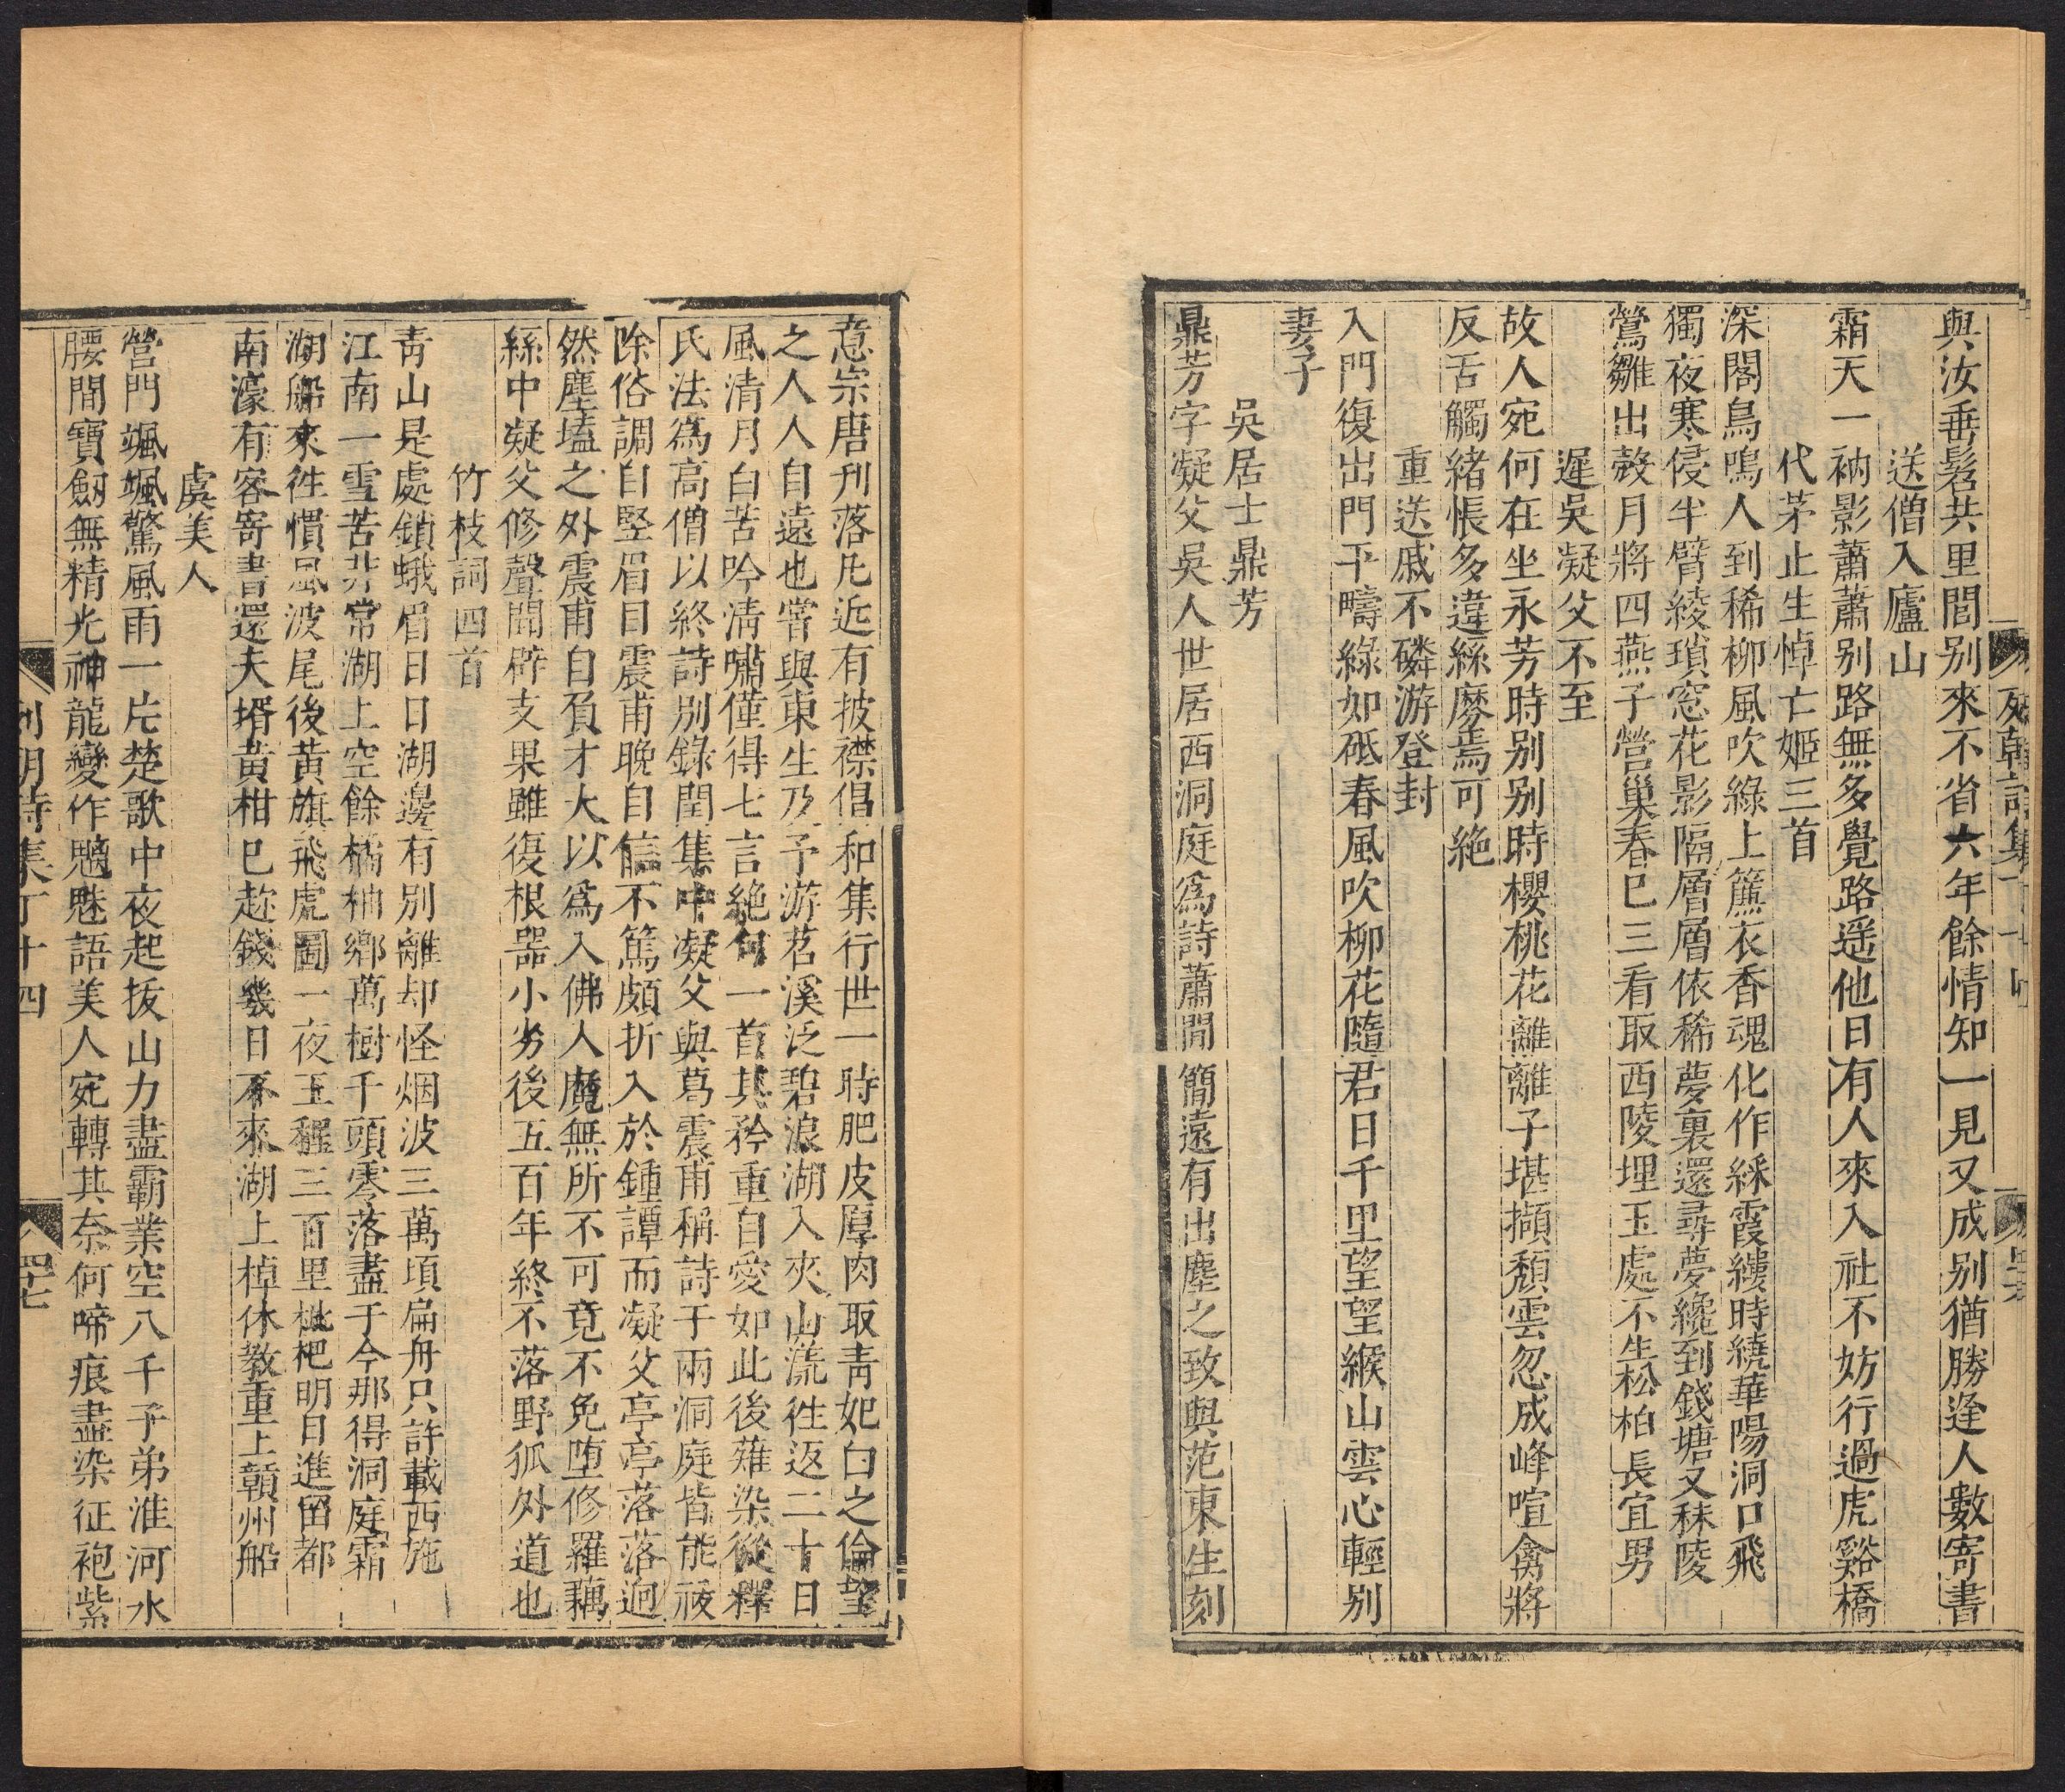 與汝垂髫共里閭别來不省六年餘情知一見又成别猶勝逢人數寄書
送僧入廬山
霜天一衲影蕭蕭别路無多覺路遥他日有人來入社不妨行過虎谿橋
代茅止生悼亡姬三首
深閣鳥鳴人到稀柳風吹綠上簾衣香魂化作綵霞縷時繞華陽洞口飛
獨夜寒侵半臂綾瑣窓花影隔層層依稀夢裏還尋夢纔到錢塘又秣陵
鶯雛出㲉月將四燕子營巢春巳三看取西陵埋玉處不生松柏長宜男
遲吳凝父不至
故人宛何在坐永芳時别别時櫻桃花離離子堪擷頹雲忽成峰喧禽將
反舌觸緒悵多違絲麼焉可絶
重送戚不磷游登封
入門復出門平疇綠如砥春風吹柳花隨君日千里望望緱山雲心輕别
妻子
吳居士鼎芳
鼎芳字凝父吳人世居西洞庭爲詩蕭閒簡遠有出塵之致與范東生刻
意宗唐刋落凡近有披襟倡和集行世一時肥皮厚肉取青妃白之倫望
之人人自遠也嘗與東生及予游苕溪泛碧浪湖入夾山漾徃返二十日
風清月白苦吟清嘯僅得七言絶何一首其矜重自愛如此後薙染從釋
氏法爲高僧以終詩别錄閏集中凝父與葛震甫稱詩于兩洞庭皆能祓
除俗調自堅眉目震甫晚自信不篤頗折入於鍾譚而凝父亭亭落落逈
然塵壒之外震甫自負才大以爲入佛入魔無所不可竟不免堕修羅藕
絲中凝父修聲聞辟支果雖復根噐小劣後五百年終不落野狐外道也
竹枝詞四首
青山是處鎖蛾眉日日湖邊有别離却怪烟波三萬頃扁舟只許載西施
江南一雪苦非常湖上空餘橘柚鄉萬樹千頭零落盡于今那得洞庭霜
湖船來徃慣風波尾後黃旗飛虎圖一夜玉程三百里枇杷明日進留都
南濠有客寄書還夫壻黃柑巳趂錢幾日不來湖上棹休教重上贛州船
虞美人
營門颯颯驚風雨一片楚歌中夜起拔山力盡霸業空八千子弟淮河水
腰間寶劒無精光神龍變作魑魅語美人宛轉其奈何啼痕盡染征袍紫
列朝詩集丁十四
四七